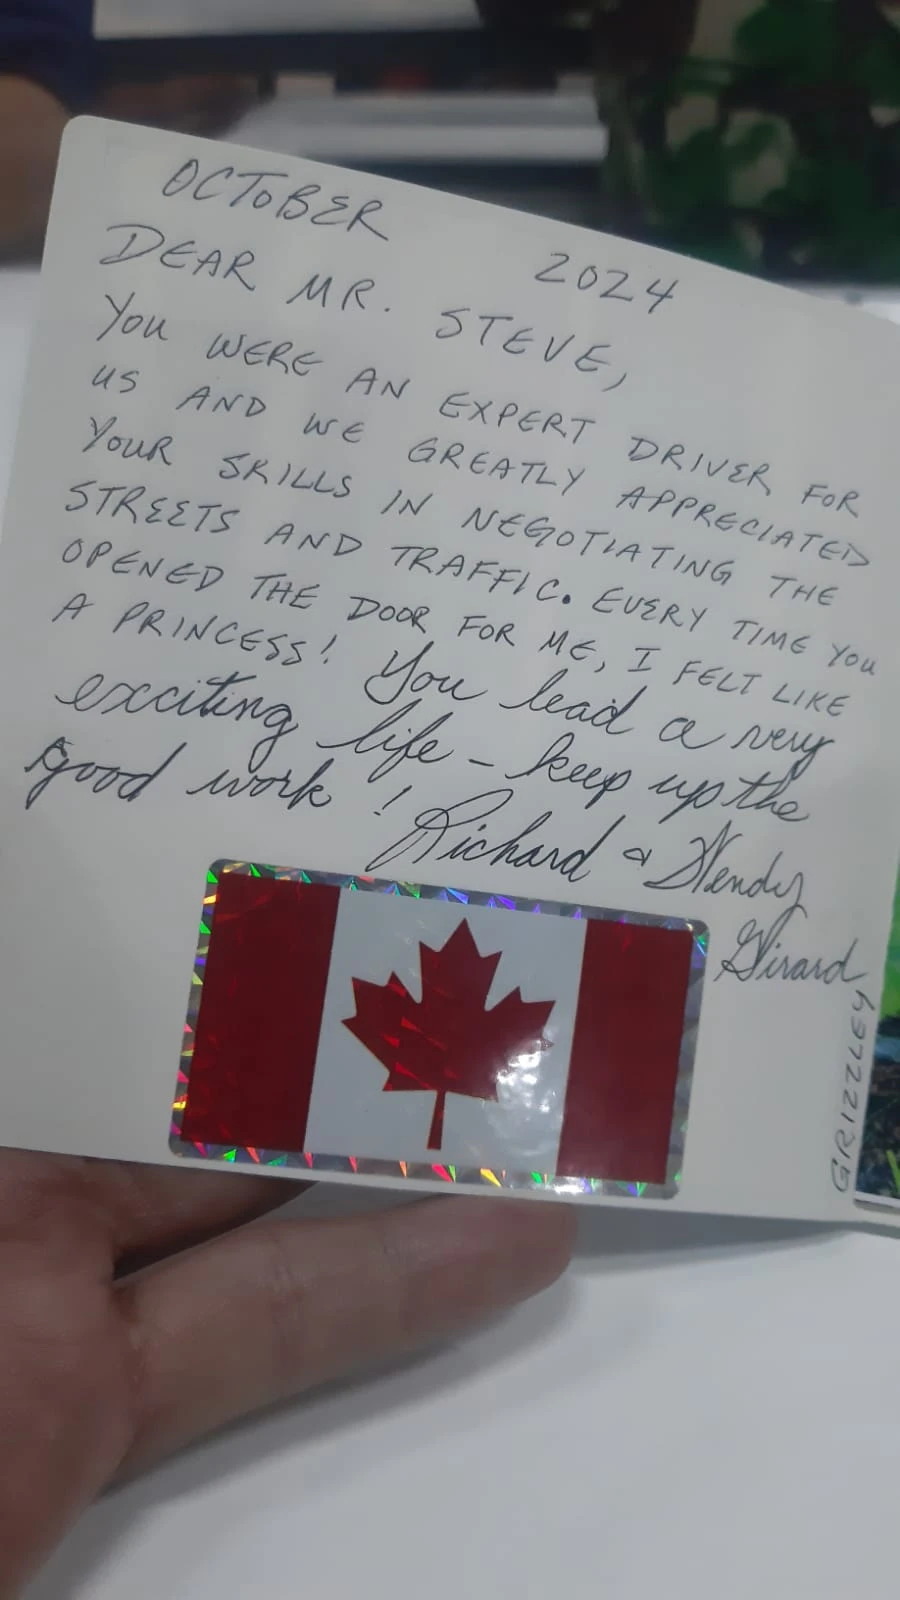 OCTOBER 2024
DEAR MR. STEVE,
YOU WERE AN EXPERT DRIVER FOR
US AND WE GREATLY APPRECIATED
YOUR SKILLS IN NEGOTIATING THE
STREETS AND TRAFFIC. EVERY TIME YOU
OPENED THE DOOR FOR ME, I FELT LIKE
A PRINCESS! You lead a very
exciting life - keep up the
good work! Richard & Wendy
Girard
GRIZZLEY